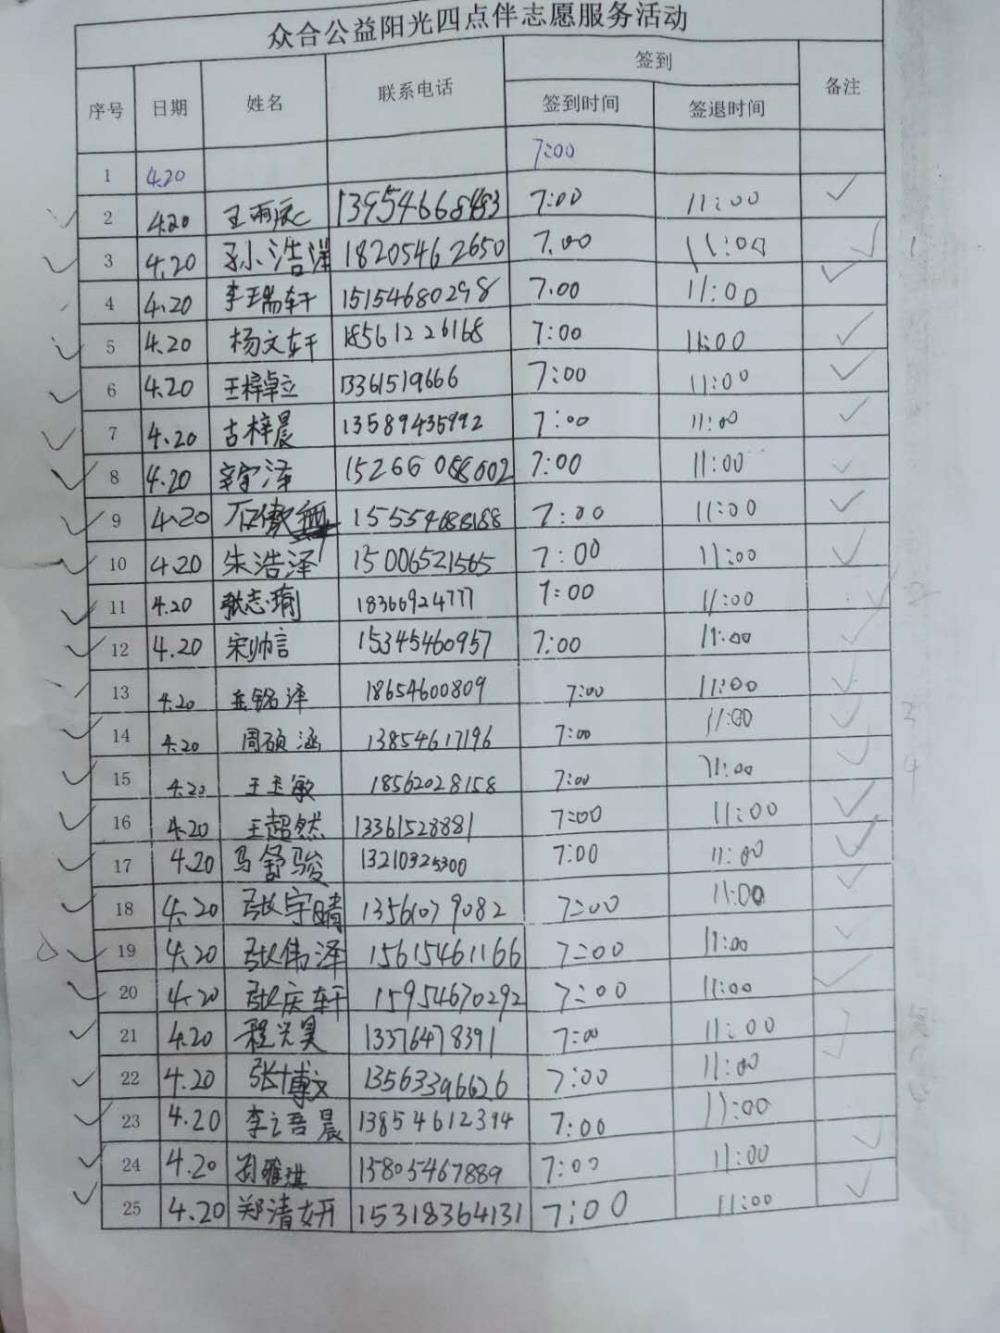 众合公益阳光四点伴志愿服务活动
序号 日期 姓名 联系电话 签到 备注
签到时间 签退时间
1 4.20 7:00
2 4.20 王雨辰 7:00 11:00 ✓
3 4.20 孙浩洋 18205462650 7.00 11:00 ✓ 1
4 4.20 李瑞轩 15154680298 7.00 11:00 ✓
5 4.20 杨文轩 18561226168 7:00 11:00 ✓
6 4.20 王梓卓立 13361519666 7:00 11:00 ✓
7 4.20 古梓晨 13589435992 7:00 11:00 ✓
8 4.20 泽 7:00 11:00 ✓
9 4.20 石傲 7:00 11:00 ✓
10 4.20 朱浩泽 15006521565 7:00 11:00 ✓
11 4.20 张志瑜 18366924777 7:00 11:00 ✓ 2
12 4.20 宋帅言 15345460957 7:00 11:00 ✓
13 4.20 岳铭泽 18654600809 7:00 11:00 ✓
14 4.20 周硕涵 13854617196 7:00 11:00 ✓ 3
15 4.20 王玉敏 18562028158 7:00 11:00 ✓ 4
16 4.20 王超然 13361528881 7:00 11:00 ✓
17 4.20 马舒骏 13210325300 7:00 11:00 ✓
18 4.20 张宇晴 13561079082 7:00 11:00 ✓
19 4.20 张伟泽 15615461166 7:00 11:00 ✓
20 4.20 张庆轩 15954670292 7:00 11:00 ✓
21 4.20 程兴昊 13376478391 7:00 11:00 ✓
22 4.20 张博文 13563396626 7:00 11:00
23 4.20 李语晨 13854612394 7:00 11:00
24 4.20 孙雅琪 15805467889 7:00 11:00 ✓
25 4.20 郑清妍 15318364131 7:00 11:00 ✓